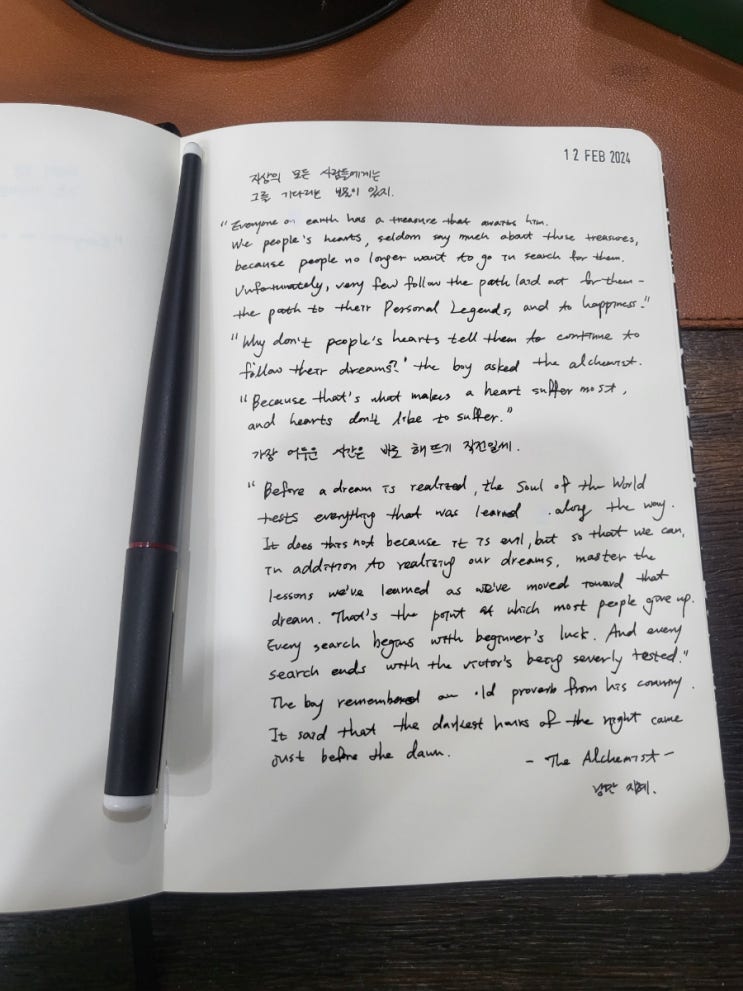 12 FEB 2024
지상의 모든 사람들에게는
그를 기다리는 보물이 있지.
"Everyone on earth has a treasure that awaits him.
We people's hearts, seldom say much about those treasures,
because people no longer want to go in search for them.
Unfortunately, very few follow the path laid out for them -
the path to their Personal Legends, and to happiness."
"Why don't people's hearts tell them to continue to
follow their dreams?' the boy asked the alchemist.
"Because that's what makes a heart suffer most,
and hearts don't like to suffer."
가장 어두운 시간은 바로 해 뜨기 직전일세.
"Before a dream is realized, the Soul of the World
tests everything that was learned along the way.
It does this not because it is evil, but so that we can,
in addition to realizing our dreams, master the
lessons we've learned as we've moved toward that
dream. That's the point at which most people give up.
Every search begins with beginner's luck. And every
search ends with the victor's being severly tested."
The boy remembered an old proverb from his country.
It said that the darkest hours of the night came
just before the dawn.
- The Alchemist -